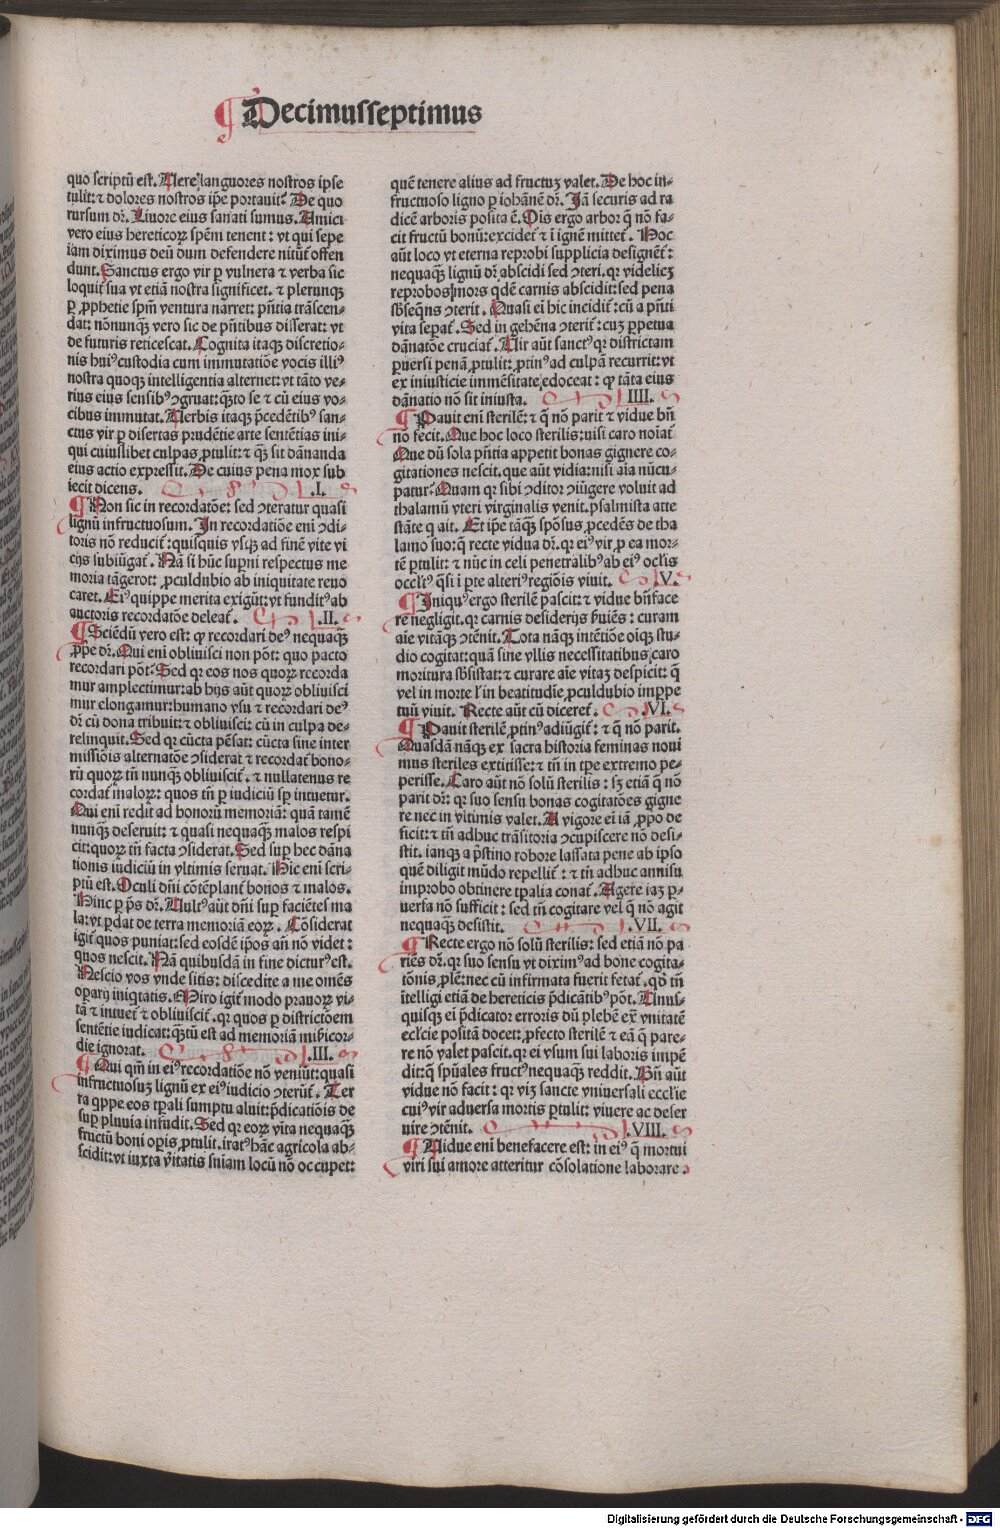 ¶ Decimusseptimus
quo scriptū est. Uere languores nostros ipse
tulit: ⁊ dolores nostros ip̄e portauit. De quo
rursum dr̄. Liuore eius sanati sumus. Amici
vero eius hereticoꝝ sp̄em tenent: vt qui sepe
iam diximus deū dum defendere nitūt᷑ offen
dunt. Sanctus ergo vir ꝑ vulnera ⁊ verba sic
loquit᷑ sua vt etiā nostra significet. ⁊ plerunqꝫ
ꝑ ꝓphetie sp̄m ventura narret: pn̄tia trāscen-
dat: nōnunqꝫ vero sic de pn̄tibus disserat: vt
de futuris reticescat. Cognita itaqꝫ discretio-
nis huiꝰ custodia cum immutatiōe vocis illiꝰ
nostra quoqꝫ intelligentia alternet: vt tāto ve-
rius eius sensibꝰ ꝯgruat: qꝫto se ⁊ cū eius vo-
cibus immutat. Uerbis itaqꝫ p̄cedētibꝰ san-
ctus vir ꝑ disertas prudētie arte sentētias ini-
qui cuiuslibet culpas ꝓtulit: ⁊ qꝫ sit dānanda
eius actio expressit. De cuius pena mox sub
iecit dicens. .I.
¶ Non sic in recordatōe: sed ꝯteratur quasi
lignū infructuosum. In recordatiōe eni ꝯdi-
toris nō reducit᷑: quisquis vsqꝫ ad finē vite vi
cijs subiūgat᷑. Nā si hūc supni respectus me
moria tāgerot: ꝓculdubio ab iniquitate reuo
caret. Eiꝰ quippe merita exigūt: vt funditꝰ ab
auctoris recordatōe deleat᷑. .II.
¶ Sciēdū vero est: ꝙ recordari deꝰ nequaqꝫ
ꝓp̄e dr̄. Qui eni obliuisci non pōt: quo pacto
recordari pōt. Sed qꝛ eos nos quoꝝ recorda
mur amplectimur: ab hijs aūt quoꝝ obliuisci
mur elongamur: humano vsu ⁊ recordari deꝰ
dr̄ cū dona tribuit: ⁊ obliuisci: cū in culpa de-
relinquit. Sed qꝛ cūcta pēsat: cūcta sine inter
missiōis alternatōe ꝯsiderat ⁊ recordat᷑ bono-
rū quoꝝ tn̄ nunqꝫ obliuiscit᷑. ⁊ nullatenus re
cordat᷑ maloꝝ: quos tn̄ ꝑ iudiciū sꝑ intuetur.
Qui eni redit ad honorū memoriā: quā tamē
nunqꝫ deseruit: ⁊ quasi nequaqꝫ malos respi
cit: quoꝝ tn̄ facta ꝯsiderat. Sed suꝑ hec dāna
tionis iudiciū in vltimis seruat. Hic eni scri-
ptū est. Oculi dn̄i cōtēplant᷑ bonos ⁊ malos.
Hinc ꝑ ps̄ dr̄. Uultꝰ aūt dn̄i suꝑ faciētes ma
la: vt ꝑdat de terra memoriā eoꝝ. Cōsiderat
igit᷑ quos puniat: sed eosdē ip̄os an̄ nō videt:
quos nescit. Nā quibusdā in fine dicturꝰ est.
Nescio vos vnde sitis: discedite a me om̄es
oꝑarij iniqtatis. Miro igit᷑ modo prauoꝝ vi-
tā ⁊ intuet᷑ ⁊ obliuiscit᷑. qꝛ quos ꝑ districtōem
sentētie iudicat: qꝫtū est ad memoriā misericor-
die ignorat. .III.
¶ Qui qm̄ in eiꝰ recordatiōe nō veniūt: quasi
infructuosuꝫ lignū ex eiꝰ iudicio ꝯterūt᷑. Ter
ra qppe eos tꝑali sumptu aluit: p̄dicatiōis de
suꝑ pluuia infudit. Sed qꝛ eoꝝ vita nequaqꝫ
fructū boni oꝑis ꝓtulit. iratꝰ hāc agricola ab-
scidit: vt iuxta v̄itatis sniam locū nō occupet:
quē tenere alius ad fructuꝫ valet. De hoc in-
fructuoso ligno ꝑ iohānē dr̄. Iā securis ad ra
dicē arboris posita ē. Ois ergo arbor q̄ nō fa-
cit fructū bonū: excidet᷑ ⁊ ī ignē mittet᷑. Hoc
aūt loco vt eterna reprobi supplicia designet᷑:
nequaqꝫ lignū dr̄ abscidi sed ꝯteri. qꝛ videlicꝫ
reprobos mors qdē carnis abscidit: sed pena
sb̄seqn̄s ꝯterit. Quasi ei hic incidit᷑: cū a pn̄ti
vita seꝑat᷑. Sed in gehēna ꝯterit᷑: cuꝫ ꝑpetua
dānatōe cruciat᷑. Uir aūt sanctꝰ qꝛ districtam
ꝑuersi penā ꝓtulit: ꝓtinꝰ ad culpā recurrit: vt
ex iniusticie immēsitate edoceat: ꝙ tāta eius
dānatio nō sit iniusta. .IIII.
¶ Pauit eni sterilē: ⁊ q̄ nō parit ⁊ vidue bn̄
nō fecit. Que hoc loco sterilis: nisi caro noīat᷑
Que dū sola pn̄tia appetit bonas gignere co-
gitationes nescit. que aūt vidua: nisi aīa nūcu-
patur. Quam qꝛ sibi ꝯditor ꝯiūgere voluit ad
thalamū vteri virginalis venit. psalmista atte
stāte q ait. Et ip̄e tāqꝫ spōsus ꝓcedēs de tha
lamo suo: q̄ recte vidua dr̄. qꝛ eiꝰ vir ꝓ ea mor-
tē ꝑtulit: ⁊ nūc in celi penetralibꝰ ab eiꝰ oclis
occltꝰ q̄si ī ꝑte alteriꝰ regiōis viuit. .V.
¶ Iniquꝰ ergo sterilē pascit: ⁊ vidue bn̄face
re negligit. qꝛ carnis desiderijs s̄uiēs: curam
aīe vitāqꝫ ꝯtēnit. Tota nāqꝫ intētiōe oīqꝫ stu-
dio cogitat: quā sine vllis necessitatibus caro
moritura sb̄sistat: ⁊ curare aīe vitaꝫ despicit: q̄
vel in morte l' in beatitudīe ꝓculdubio imꝑpe
tuū viuit. Recte aūt cū diceret. .VI.
¶ Pauit sterilē ꝓtinꝰ adiūgit᷑: ⁊ q̄ nō parit.
Quasdā nāqꝫ ex sacra historia feminas noui
mus steriles extitisse: ⁊ tn̄ in tp̄e extremo pe-
perisse. Caro aūt nō solū sterilis: sꝫ etiā q̄ nō
parit dr̄: qꝛ suo sensu bonas cogitatōes gigne
re nec in vltimis valet. A vigore ei iā ꝓp̄o de
ficit: ⁊ tn̄ adhuc trāsitoria ꝯcupiscere nō desi-
stit. iamqꝫ a p̄stino robore lassata pene ab ipso
quē diligit mūdo repellit᷑: ⁊ tn̄ adhuc annisu
improbo obtinere tꝑalia conat᷑. Agere iaꝫ ꝑ-
uersa nō sufficit: sed tn̄ cogitare vel q̄ nō agit
nequaqꝫ desistit. .VII.
¶ Recte ergo nō solū sterilis: sed etiā nō pa
riēs dr̄. qꝛ suo sensu vt diximꝰ ad bone cogita-
tōnis ꝓlē: nec cū infirmata fuerit fetat᷑. qd̄ tn̄
ītelligi etiā de hereticis p̄dicātibꝰ pōt. Unus-
quisqꝫ ei p̄dicator erroris dū plebē ex̄ vnitatē
eccl'cie positā docet: ꝓfecto sterilē ⁊ eā q̄ pare-
re nō valet pascit. qꝛ ei vsum sui laboris impē
dit: q̄ spūales fructꝰ nequaqꝫ reddit. Bn̄ aūt
vidue nō facit: qꝛ viꝫ sancte vniuersali ecclīe
cuiꝰ vir aduersa mortis ꝑtulit: viuere ac deser
uire ꝯtēnit. .VIII.
¶ Uidue eni benefacere est: in eiꝰ q̄ mortui
viri sui amore atteritur cōsolatione laborare.
Digitalisierung gefördert durch die Deutsche Forschungsgemeinschaft - DFG